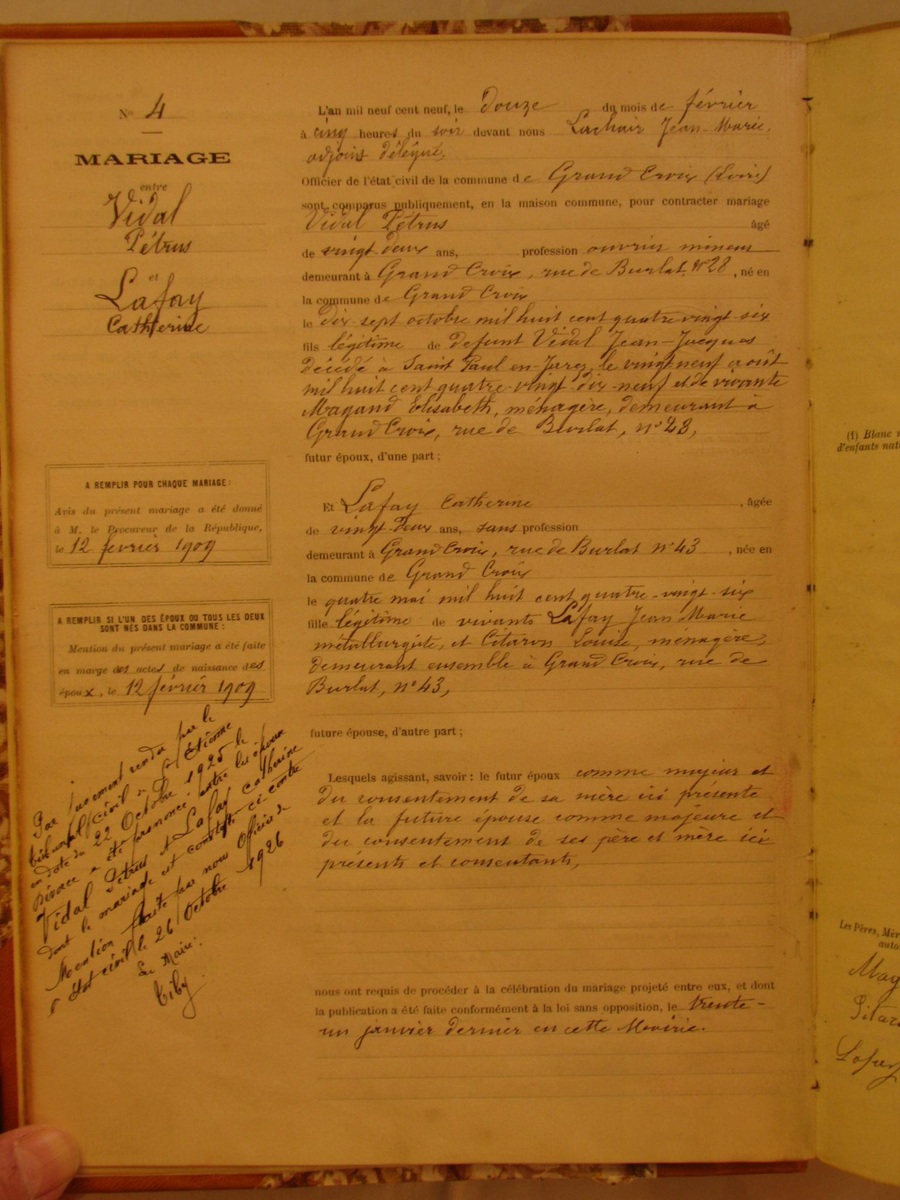 N° 4
MARIAGE
entre
Vidal
Pétrus
et
Lafay
Catherine
A REMPLIR POUR CHAQUE MARIAGE :
Avis du présent mariage a été donné
à M. le Procureur de la République,
le 12 février 1909
A REMPLIR SI L'UN DES ÉPOUX OU TOUS LES DEUX
SONT NÉS DANS LA COMMUNE :
Mention du présent mariage a été faite
en marge des actes de naissance des
époux, le 12 février 1909
Par jugement rendu par le
tribunal civil de St Etienne
en date du 22 Octobre 1925 le
Divorce a été prononcé entre les époux
Vidal Pétrus et Lafay Catherine
dont le mariage est constaté ci-contre
Mention faite par nous Officier de
l'Etat civil le 26 Octobre 1926
Le Maire :
L'an mil neuf cent neuf, le douze du mois de février
à cinq heures du soir devant nous Lachair Jean-Marie,
adjoint délégué,
Officier de l'état civil de la commune de Grand Croix (Loire)
sont comparus publiquement, en la maison commune, pour contracter mariage
Vidal Pétrus âgé
de vingt deux ans, profession ouvrier mineur
demeurant à Grand Croix, rue de Burlat, n° 28, né en
la commune de Grand Croix
le dix-sept octobre mil huit cent quatre vingt six
fils légitime de défunt Vidal Jean-Jacques
décédé à Saint Paul en Jarez, le vingt neuf août
mil huit cent quatre-vingt dix-neuf et de vivante
Magand Elisabeth, ménagère, demeurant à
Grand Croix, rue de Burlat, n° 28,
futur époux, d'une part ;
Et Lafay Catherine, âgée
de vingt deux ans, sans profession
demeurant à Grand Croix, rue de Burlat n° 43, née en
la commune de Grand Croix
le quatre mai mil huit cent quatre-vingt-six
fille légitime de vivants Lafay Jean Marie
métallurgiste, et Louise, ménagère,
demeurant ensemble à Grand Croix, rue de
Burlat, n° 43,
future épouse, d'autre part ;
Lesquels agissant, savoir : le futur époux comme majeur et
du consentement de sa mère ici présente
et la future épouse comme majeure et
du consentement de ses père et mère ici
présents et consentants,
nous ont requis de procéder à la célébration du mariage projeté entre eux, et dont
la publication a été faite conformément à la loi sans opposition, le trente-
un janvier dernier en cette Mairie.
(1) Blanc
d'enfants
Les Pères,